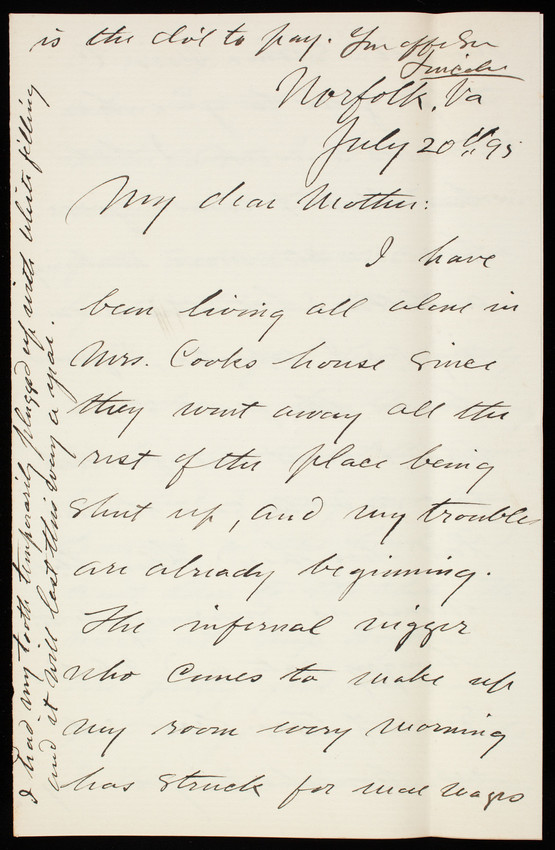 is the do'l to pay. Yr aff Son
Lincoln
Norfolk, Va
July 20th 95
My dear Mother:
I have
been living all alone in
Mrs. Cooks house since
they went away all the
rest of the place being
shut up, and my troubles
are already beginning.
The infernal nigger
who comes to make up
my room every morning
has struck for mor wages
I had my tooth temporarily plugged up with white filling
and it will last this way a year.